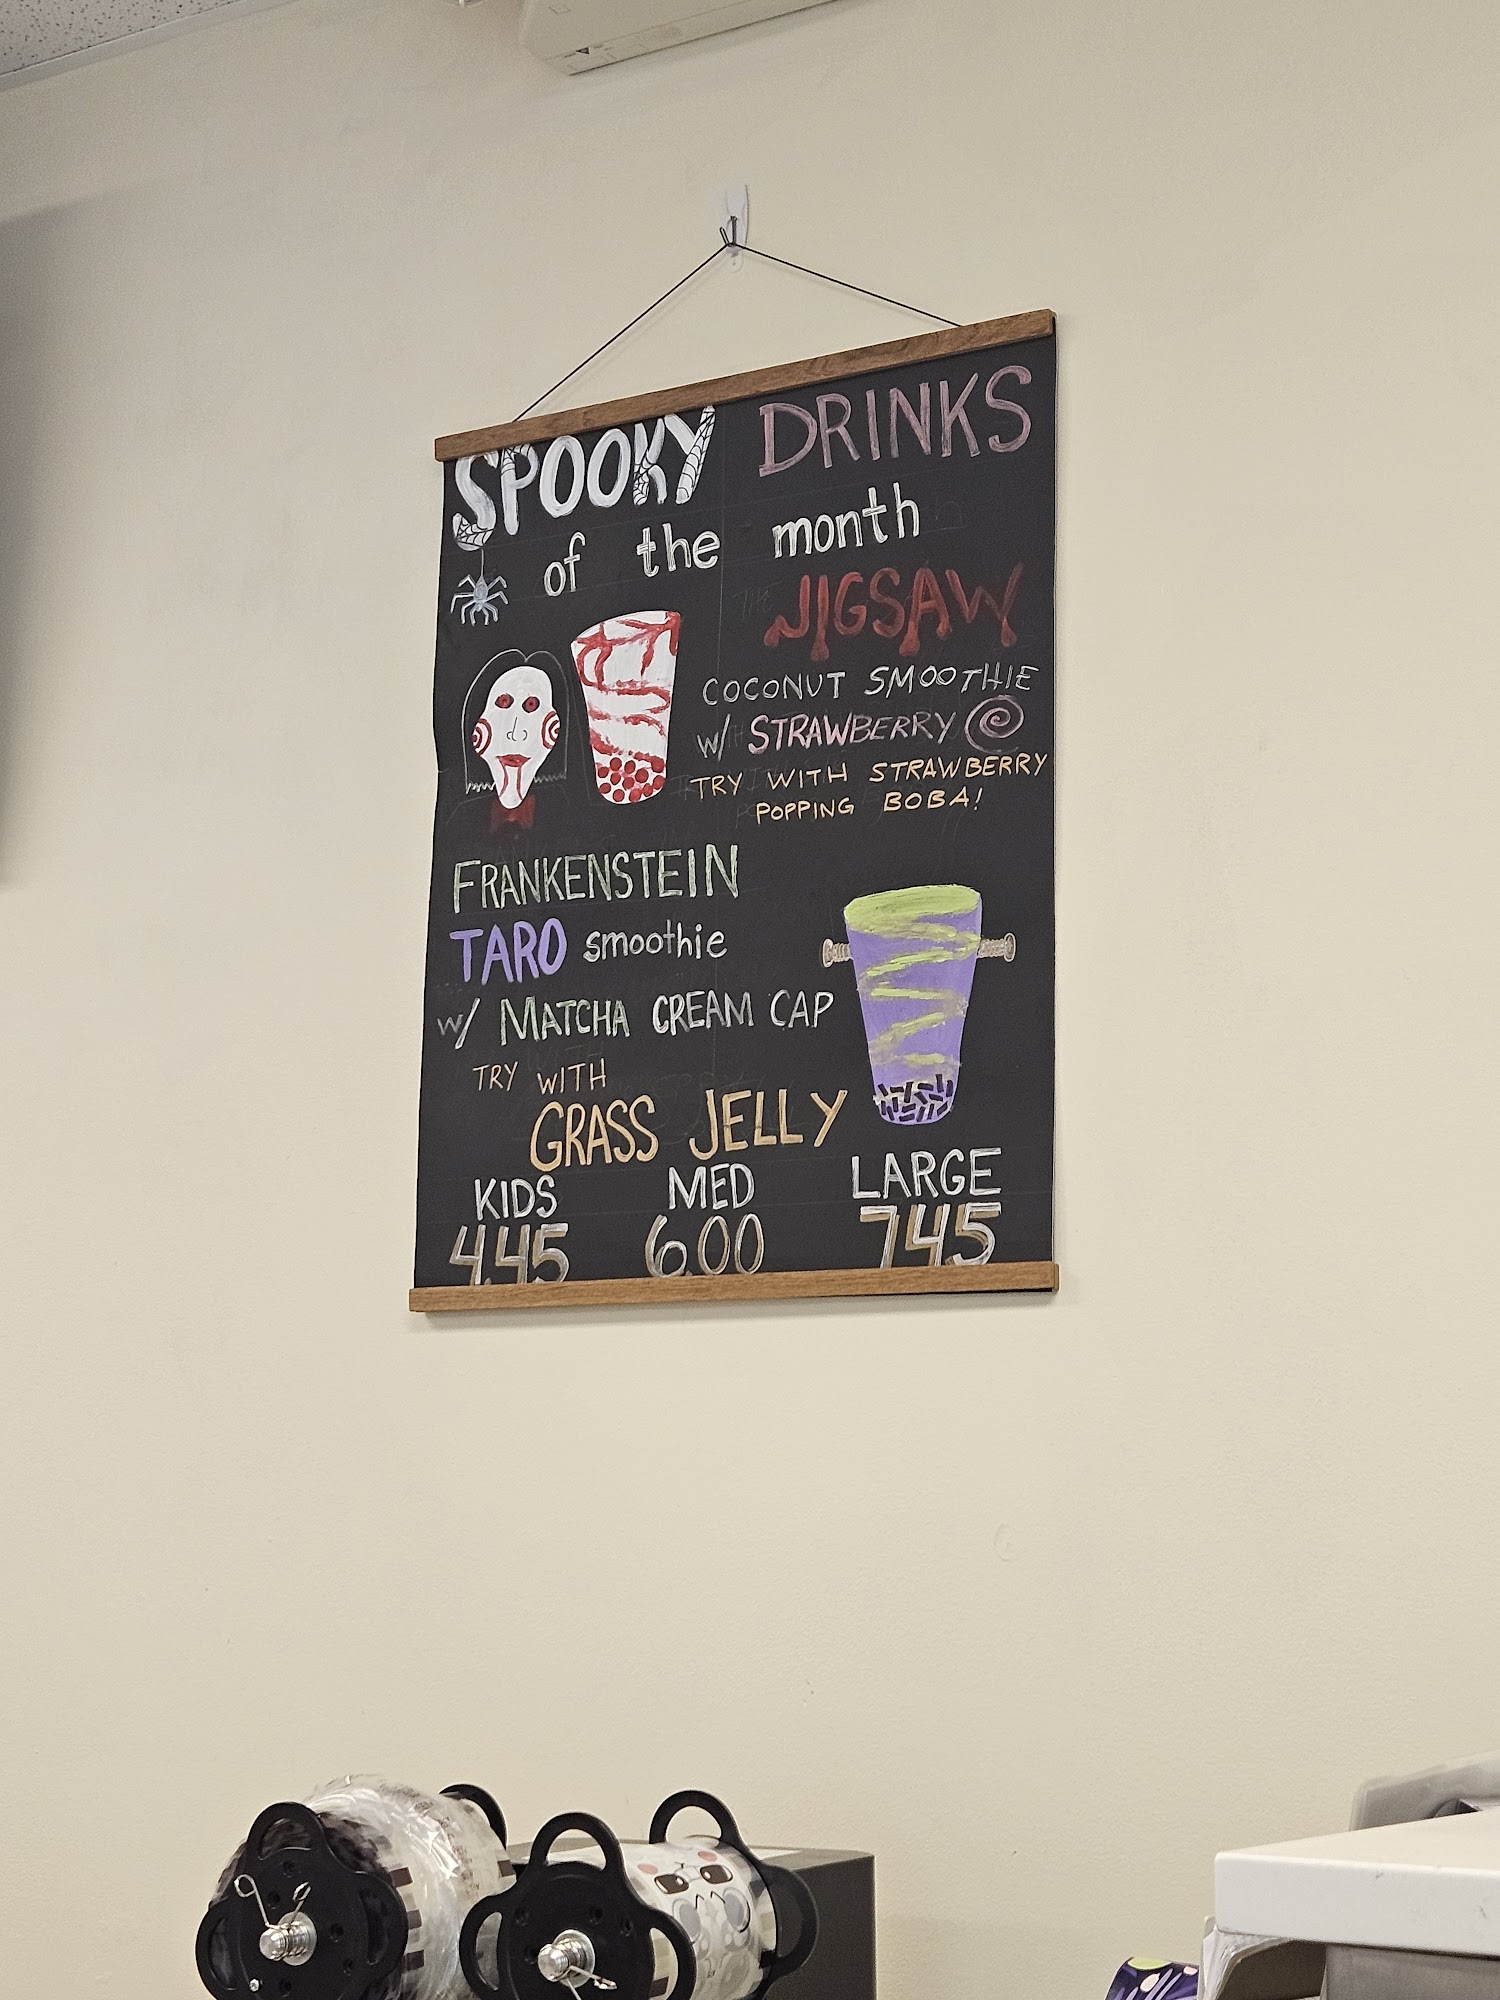 SPOOKY DRINKS
of the month
THE JIGSAW
COCONUT SMOOTHIE
w/ STRAWBERRY
TRY WITH STRAWBERRY
POPPING BOBA!
FRANKENSTEIN
TARO smoothie
w/ MATCHA CREAM CAP
TRY WITH
GRASS JELLY
KIDS MED LARGE
4.45 6.00 7.45